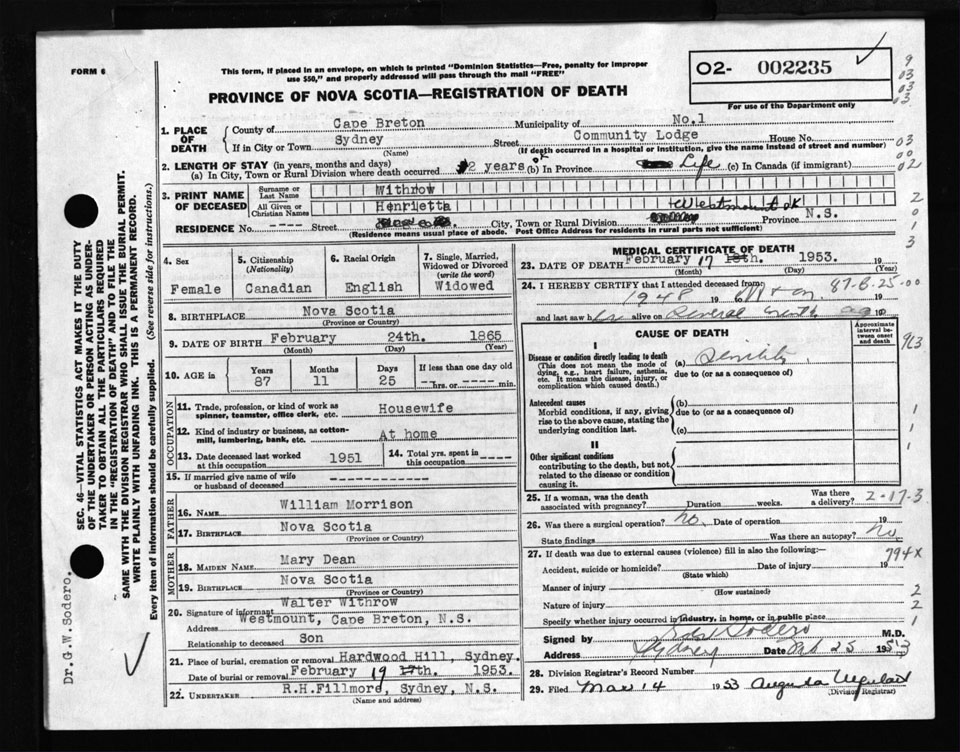 FORM 6
This form, if placed in an envelope, on which is printed "Dominion Statistics—Free, penalty for improper
use $50," and properly addressed will pass through the mail "FREE"
PROVINCE OF NOVA SCOTIA—REGISTRATION OF DEATH
02- 002235
For use of the Department only
9
03
03
03
1. PLACE OF DEATH
County of Cape Breton Municipality of No.1
If in City or Town Sydney Street Community Lodge House No.
(Name) (If death occurred in a hospital or institution, give the name instead of street and number)
03
00
02
2. LENGTH OF STAY (in years, months and days)
(a) In City, Town or Rural Division where death occurred 2 years (b) In Province Life (c) In Canada (if immigrant)
3. PRINT NAME OF DECEASED
Surname or Last Name Withrow
All Given or Christian Names Henrietta
2
0
1
3
Westmount OK
RESIDENCE No. ---- Street City, Town or Rural Division Province N.S.
(Residence means usual place of abode. Post Office Address for residents in rural parts not sufficient)
4. Sex
Female
5. Citizenship
(Nationality)
Canadian
6. Racial Origin
English
7. Single, Married,
Widowed or Divorced
(write the word)
Widowed
8. BIRTHPLACE Nova Scotia
(Province or Country)
9. DATE OF BIRTH February 24th. 1865
(Month) (Day) (Year)
10. AGE in
Years
87
Months
11
Days
25
If less than one day old
hrs. or min.
OCCUPATION
11. Trade, profession, or kind of work as
spinner, teamster, office clerk, etc. Housewife
12. Kind of industry or business, as cotton-
mill, lumbering, bank, etc. At home
13. Date deceased last worked
at this occupation 1951
14. Total yrs. spent in
this occupation -----
15. If married give name of wife
or husband of deceased -------------
FATHER
16. NAME William Morrison
17. BIRTHPLACE Nova Scotia
(Province or Country)
MOTHER
18. MAIDEN NAME Mary Dean
19. BIRTHPLACE Nova Scotia
(Province or Country)
20. Signature of informant Walter Withrow
Address Westmount, Cape Breton, N.S.
Relationship to deceased Son
21. Place of burial, cremation or removal Hardwood Hill, Sydney.
Date of burial or removal February 19 17th. 1953.
22. UNDERTAKER R.H.Fillmore, Sydney, N.S.
(Name and address)
MEDICAL CERTIFICATE OF DEATH
23. DATE OF DEATH February 17 18th. 1953. 19
(Month) (Day) (Year)
24. I HEREBY CERTIFY that I attended deceased from:
87-B-25-00
1948 19 to 19
and last saw alive on Several months ago 19
CAUSE OF DEATH
Approximate
interval be-
tween onset
and death
I
Disease or condition directly leading to death
(This does not mean the mode of
dying, e.g., heart failure, asthenia,
etc. It means the disease, injury, or
complication which caused death.)
(a) Senility
due to (or as a consequence of)
963
Antecedent causes
Morbid conditions, if any, giving
rise to the above cause, stating the
underlying condition last.
(b)
due to (or as a consequence of)
(c)
1
1
1
II
Other significant conditions
contributing to the death, but not
related to the disease or condition
causing it.
25. If a woman, was the death
associated with pregnancy? Duration weeks. Was there
a delivery?
2-17-3
26. Was there a surgical operation? no Date of operation 19
State findings Was there an autopsy? no
27. If death was due to external causes (violence) fill in also the following:—
794x
Accident, suicide or homicide? Date of injury 19
(State which)
Manner of injury
(How sustained)
Nature of injury
Specify whether injury occurred in industry, in home, or in public place
2
2
1
Signed by Sodero M.D.
Address Sydney Date Feb 25 1953
28. Division Registrar's Record Number
29. Filed Mar 14 1953 Augusta
(Division Registrar)
SEC. 46—VITAL STATISTICS ACT MAKES IT THE DUTY
OF THE UNDERTAKER OR PERSON ACTING AS UNDER-
TAKER TO OBTAIN ALL THE PARTICULARS REQUIRED
IN THE "REGISTRATION OF DEATH" AND TO FILE THE
SAME WITH THE DIVISION REGISTRAR WHO SHALL ISSUE THE BURIAL PERMIT.
WRITE PLAINLY WITH UNFADING INK. THIS IS A PERMANENT RECORD.
Every item of information should be carefully supplied. (See reverse side for instructions.)
Dr.G.W.Sodero.